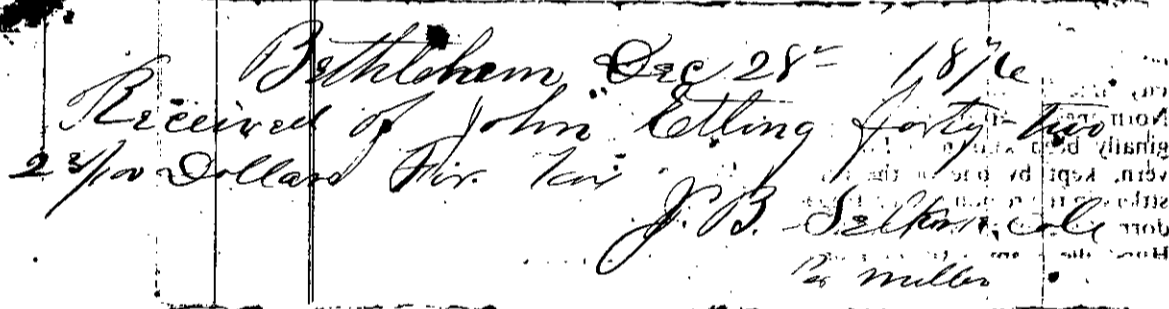 Bethlehem Dec 28" 1876
Received of John Etling forty-two
23/100 Dollars For Tax
J. B. Selkirk, col
Per Miller